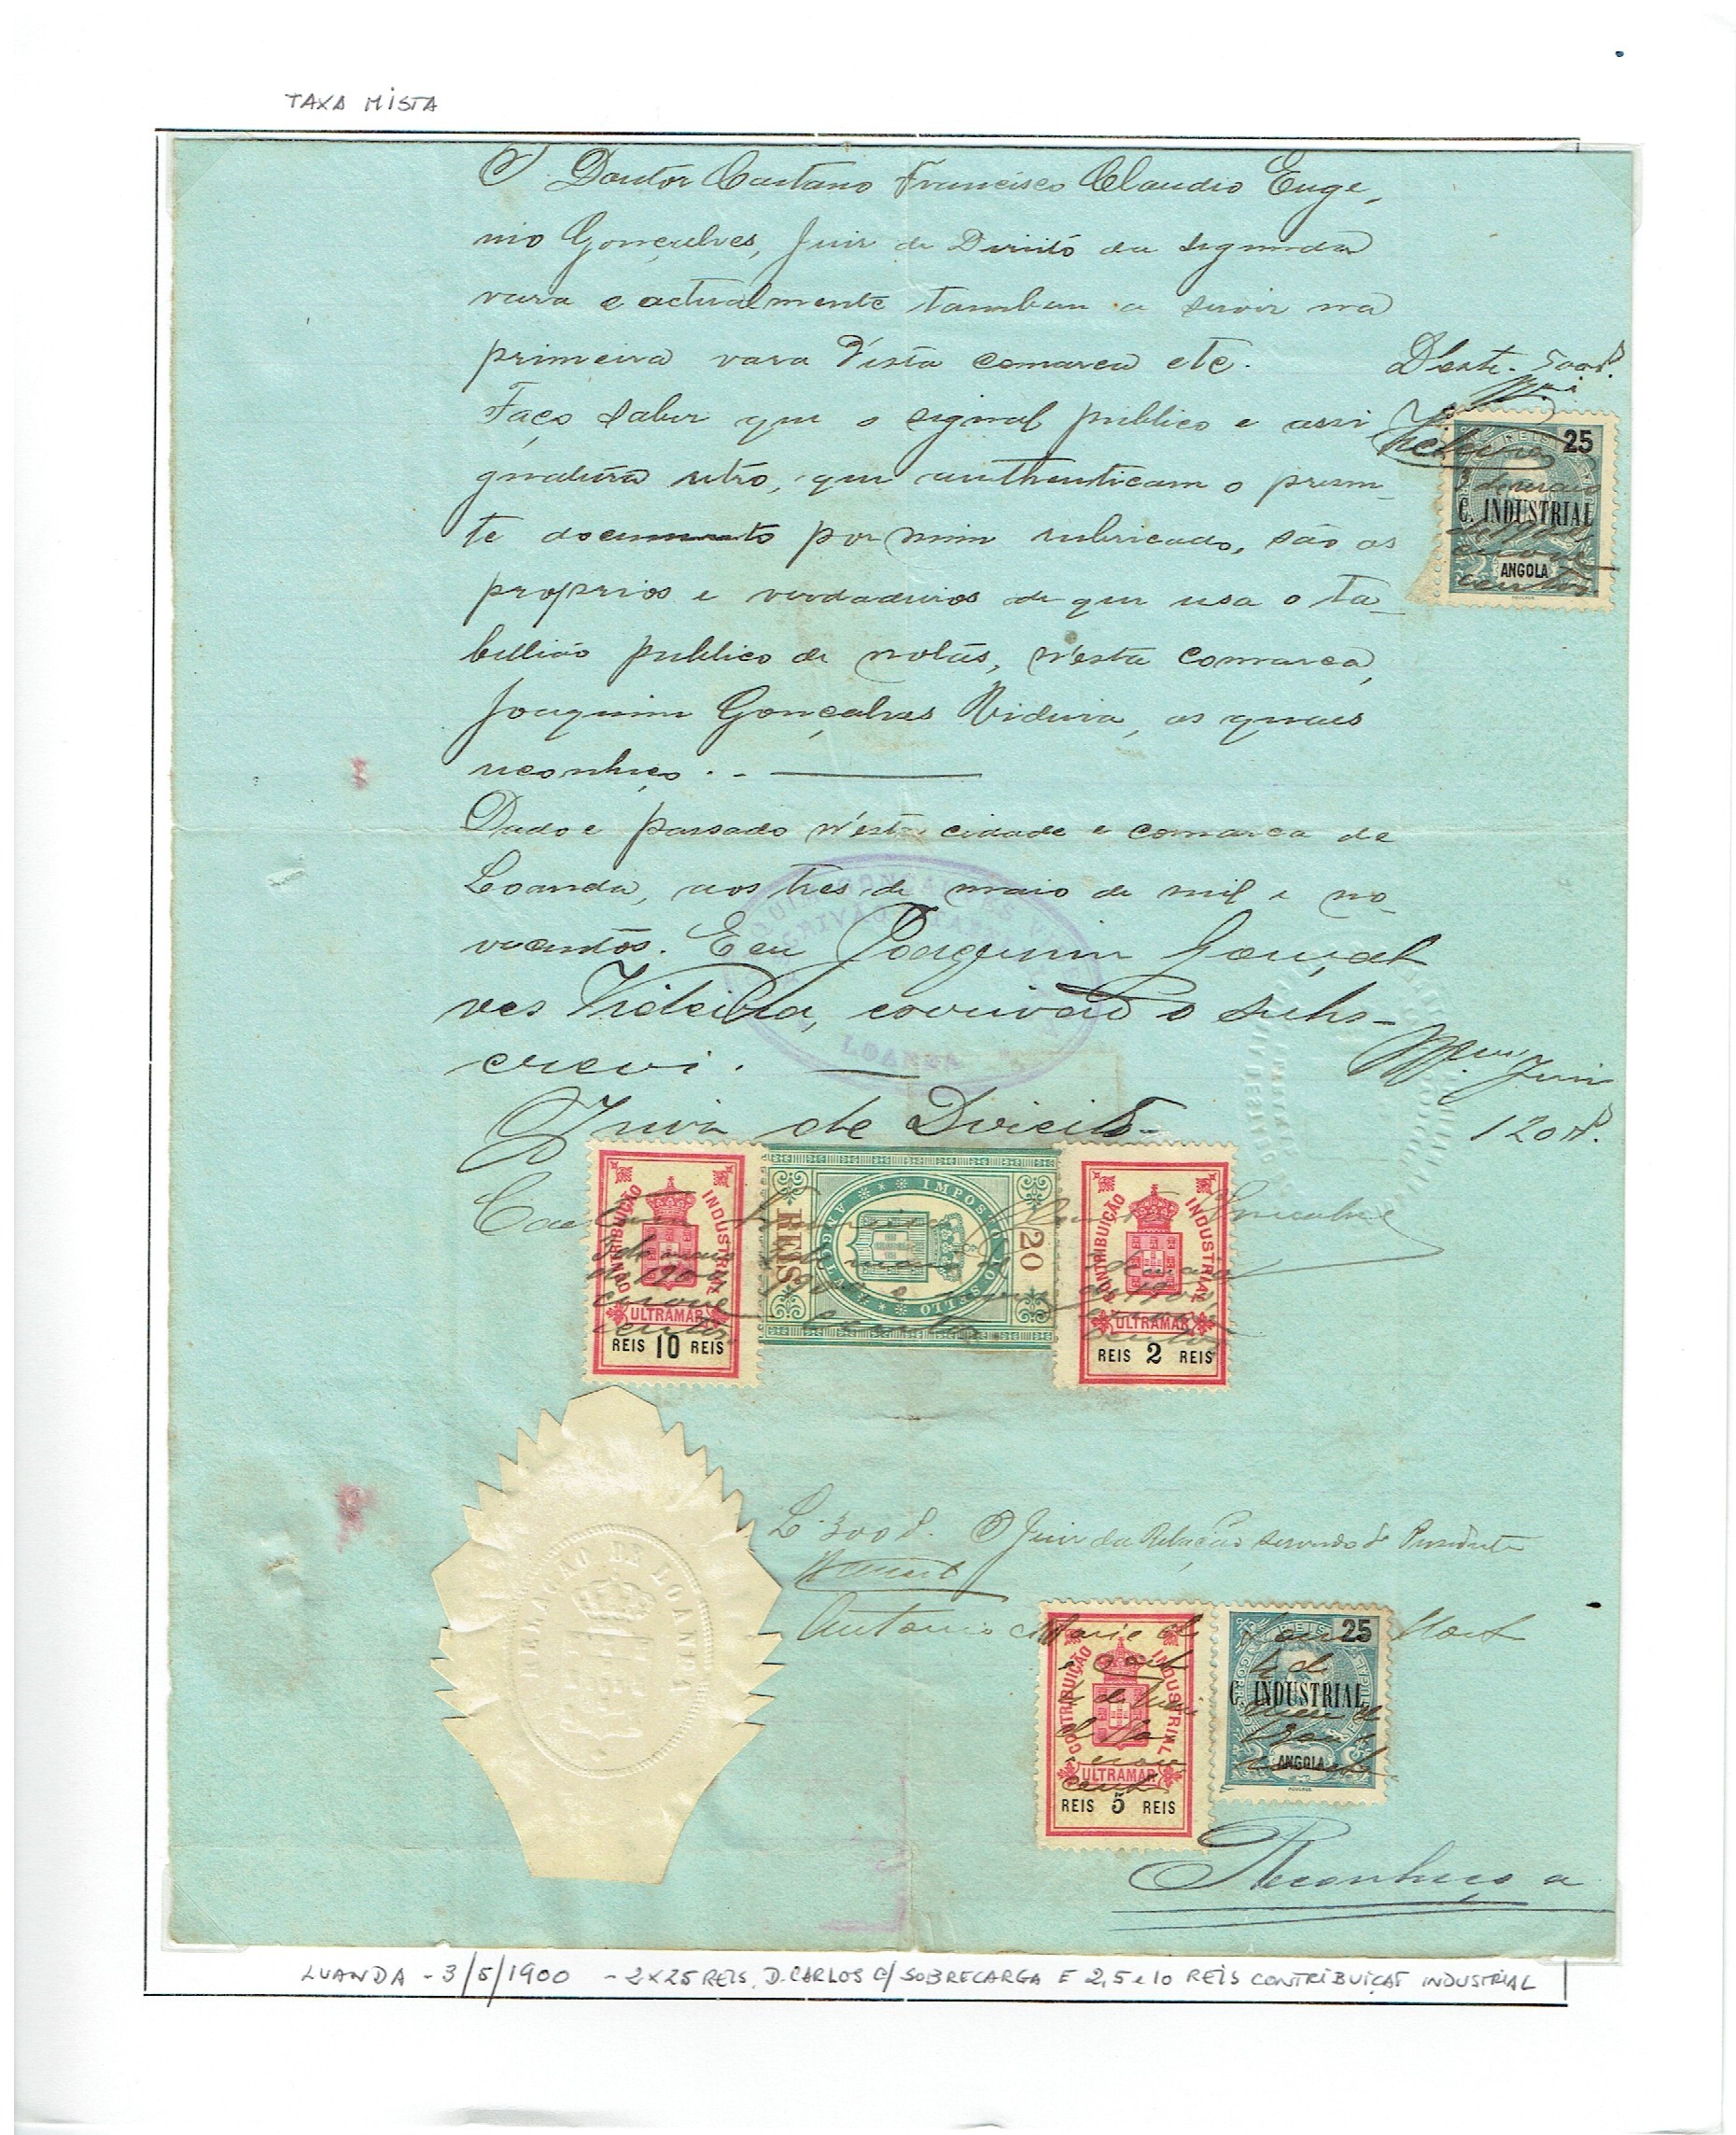 TAXA MISTA
O Doutor Caetano Francisco Claudio Euge-
nio Gonçalves, Juiz de Direito da segunda
vara e actualmente tambem a servir na
primeira vara d'esta comarca etc.
D'esta - 500 rs.
Faço saber que o signal publico e assi
gnatura retro, que authenticam o presen-
te documento por mim rubricado, são os
proprios e verdadeiros de que usa o ta-
bellião publico de notas, n'esta comarca,
Joaquim Gonçalves Videira, os quaes
reconheço. -
REIS 25
3 de maio
C. INDUSTRIAL
de 1900
ANGOLA
Dado e passado n'esta cidade e comarca de
Loanda, aos tres de maio de mil e no-
vecentos. Eu Joaquim Gonçal
ves Videira, escrivão o subs-
crevi.
LOANDA
Juiz
120 rs.
Juiz de Direito
Caetano Francisco Claudio Gonçalves
CONTRIBUIÇÃO INDUSTRIAL
3 de maio
de 1900
ULTRAMAR
REIS 10 REIS
IMPOSTO DO SELLO
20 REIS
CONTRIBUIÇÃO INDUSTRIAL
ULTRAMAR
REIS 2 REIS
RELAÇÃO DE LOANDA
L. 300 rs. O Juiz da Relação servindo de Presidente
Antonio Maria de
CONTRIBUIÇÃO INDUSTRIAL
ULTRAMAR
REIS 5 REIS
REIS 25
C. INDUSTRIAL
ANGOLA
Reconheço a
LUANDA - 3/5/1900 - 2x25 REIS, D. CARLOS C/ SOBRECARGA E 2,5 e 10 REIS CONTRIBUIÇÃO INDUSTRIAL